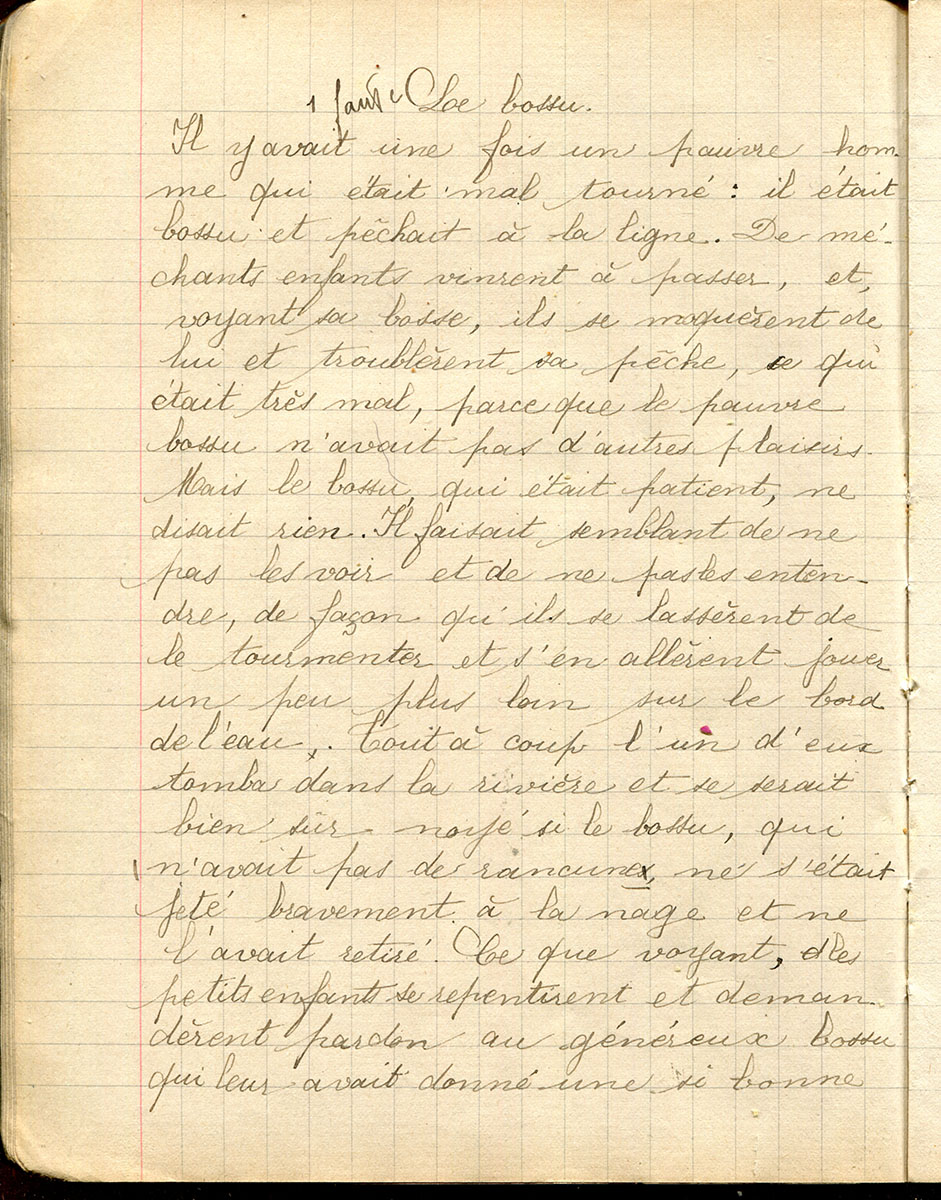 1 faute Le bossu.
Il y avait une fois un pauvre hom-
me qui était mal tourné : il était
bossu et pêchait à la ligne. De mé-
chants enfants vinrent à passer, et,
voyant sa bosse, ils se moquèrent de
lui et troublèrent sa pêche, ce qui
était très mal, parce que le pauvre
bossu n'avait pas d'autres plaisirs.
Mais le bossu, qui était patient, ne
disait rien. Il faisait semblant de ne
pas les voir et de ne pas les enten-
dre, de façon qu'ils se lassèrent de
le tourmenter et s'en allèrent jouer
un peu plus loin sur le bord
de l'eau. Tout à coup l'un d'eux
tomba dans la rivière et se serait
bien sûr noyé si le bossu, qui
n'avait pas de rancune, ne s'était
jeté bravement à la nage et ne
l'avait retiré. Ce que voyant, les
petits enfants se repentirent et deman-
dèrent pardon au généreux bossu
qui leur avait donné une si bonne